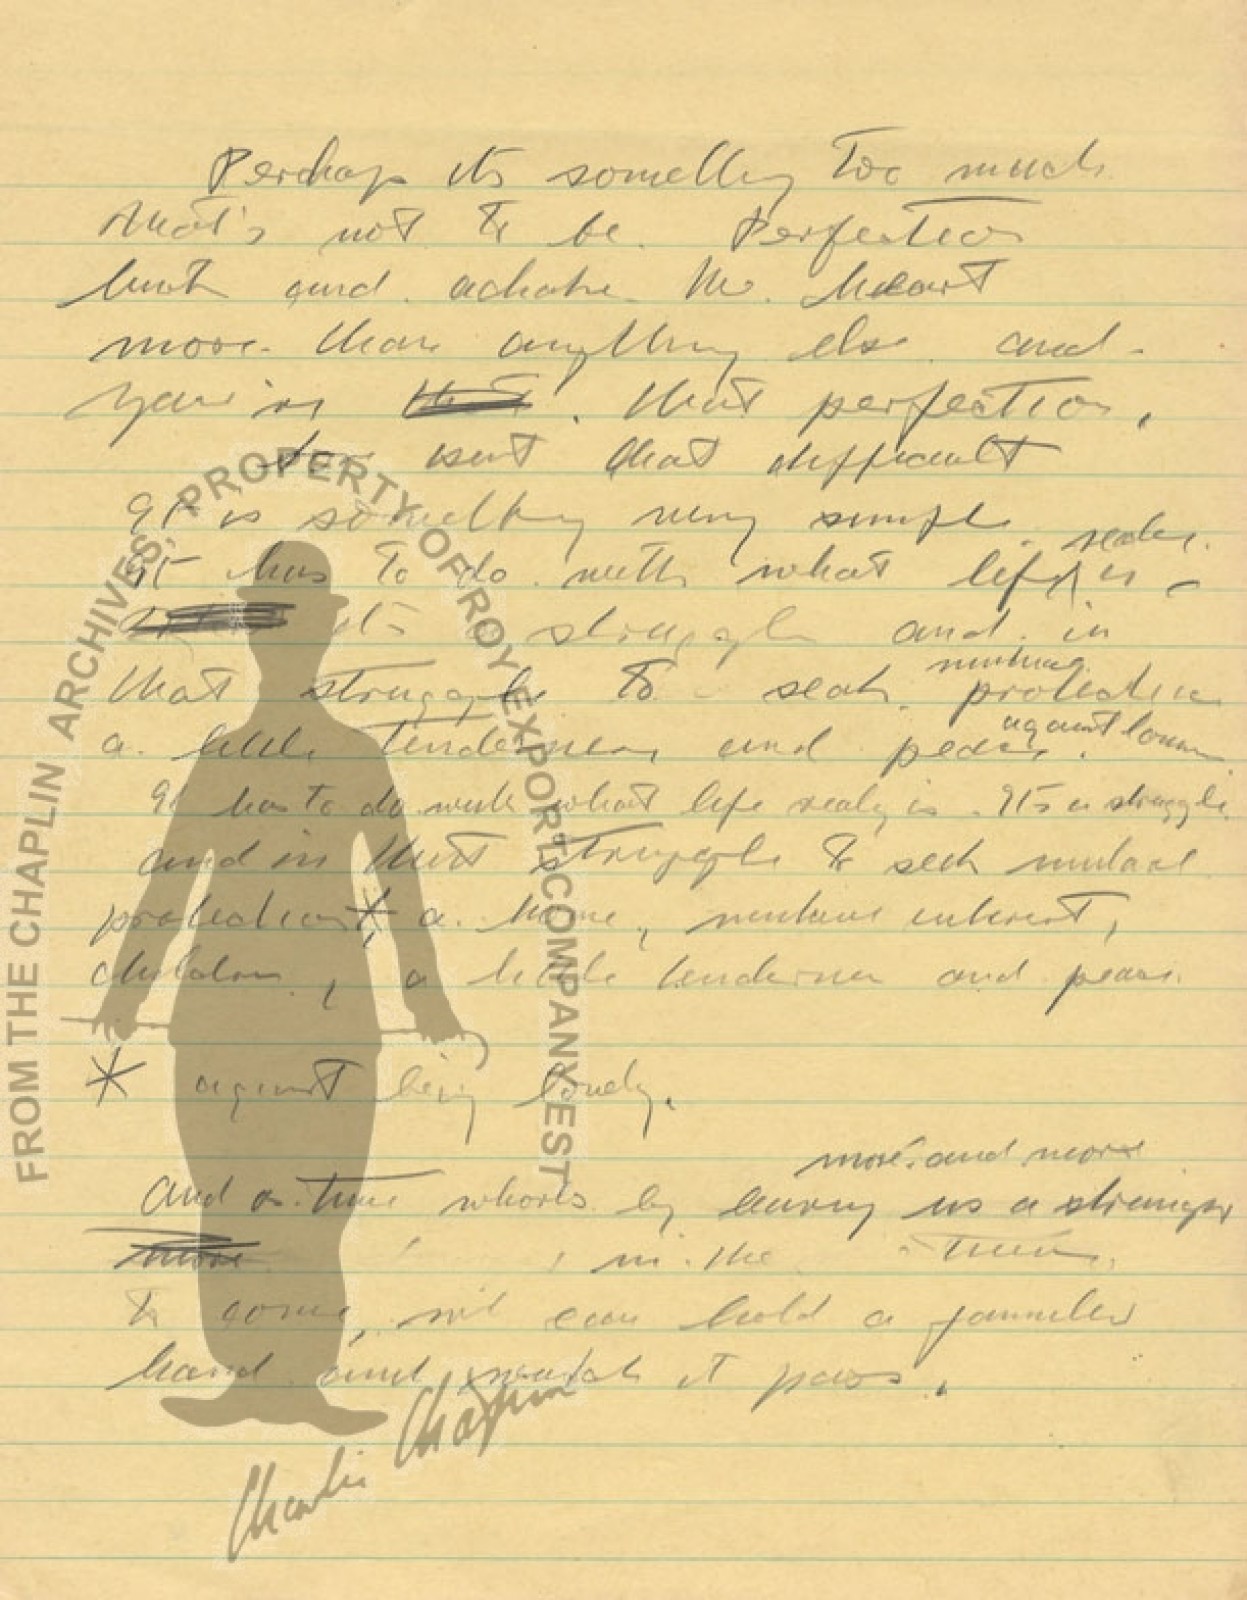 Perhaps its something Too much
that's not to be. Perfection
hurt and. the. heart
more. than anything else and -
your is that perfection,
isent that difficult
It is something very simple.
realy.
It has to do with what life is -
its struggle and in
mutual
that struggle to seak protection
against lonm
a little tenderness and peace.
It has to do with what life realy is. Its a struggle
and in that struggle to seek mutual
protection* a home, mutual interest,
children, a little tenderness and peace.
* against being lonely.
more and more
and as time whorls by leaving us a stranger
more in the time
to come, we can hold a familer
hand and watch it pass.
FROM THE CHAPLIN ARCHIVES, PROPERTY OF ROY EXPORT COMPANY EST
Charlie Chaplin